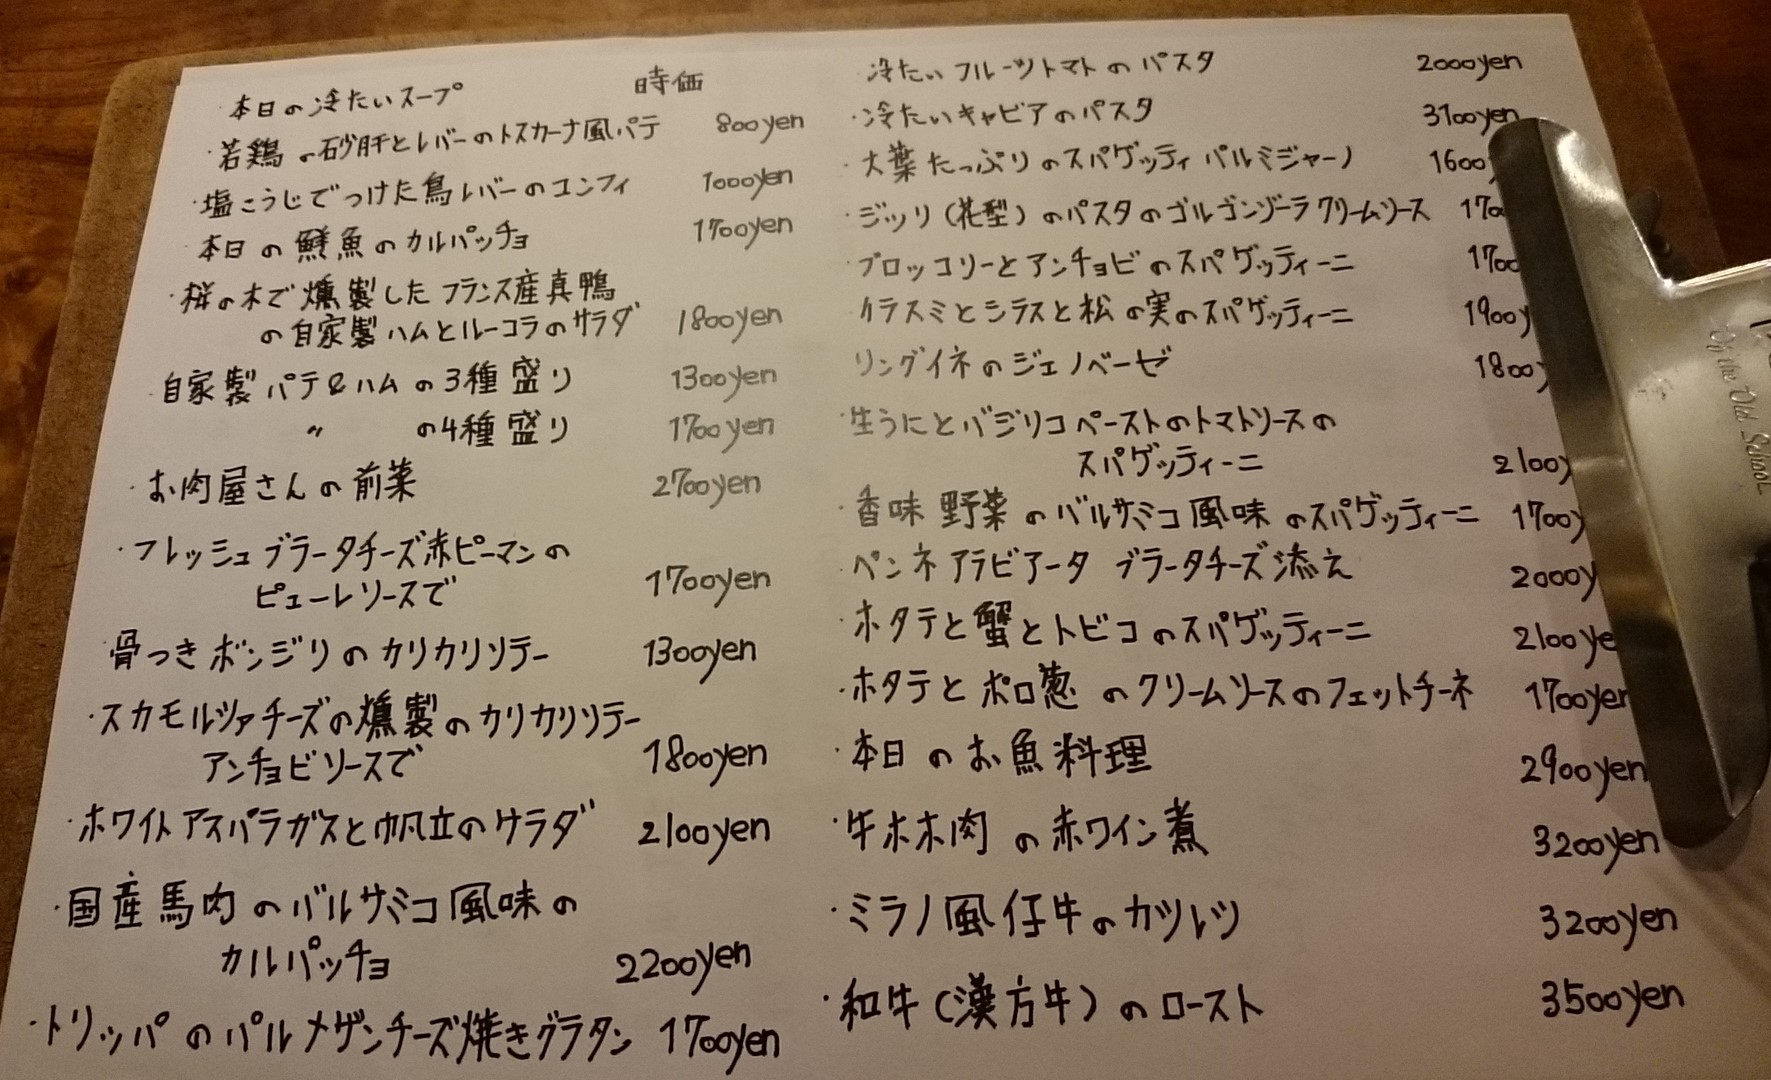 本日の冷たいスープ 時価
・若鶏の砂肝とレバーのトスカーナ風パテ 800yen
・塩こうじでつけた鳥レバーのコンフィ 1000yen
・本日の鮮魚のカルパッチョ 1700yen
・桜の木で燻製したフランス産真鴨
の自家製ハムとルーコラのサラダ 1800yen
・自家製パテ&ハムの3種盛り 1300yen
〃 の4種盛り 1700yen
・お肉屋さんの前菜 2700yen
・フレッシュブラータチーズ赤ピーマンの
ピューレソースで 1700yen
・骨つきボンジリのカリカリソテー 1300yen
・スカモルツァチーズの燻製のカリカリソテー
アンチョビソースで 1800yen
・ホワイトアスパラガスと帆立のサラダ 2100yen
・国産馬肉のバルサミコ風味の
カルパッチョ 2200yen
・トリッパのパルメザンチーズ焼きグラタン 1700yen
・冷たいフルーツトマトのパスタ 2000yen
・冷たいキャビアのパスタ 3100yen
・大葉たっぷりのスパゲッティ パルミジャーノ 1600y
・ジッリ(花型)のパスタのゴルゴンゾーラクリームソース 1700
・ブロッコリーとアンチョビのスパゲッティーニ 1700
・カラスミとシラスと松の実のスパゲッティーニ 1900y
・リングイネのジェノベーゼ 1800y
・生うにとバジリコペーストのトマトソースの
スパゲッティーニ 2100y
・香味野菜のバルサミコ風味のスパゲッティーニ 1700y
・ペンネアラビアータ ブラータチーズ添え 2000y
・ホタテと蟹とトビコのスパゲッティーニ 2100ye
・ホタテとポロ葱のクリームソースのフェットチーネ 1700yen
・本日のお魚料理 2900yen
・牛ホホ肉の赤ワイン煮 3200yen
・ミラノ風仔牛のカツレツ 3200yen
・和牛(漢方牛)のロースト 3500yen
the Old School